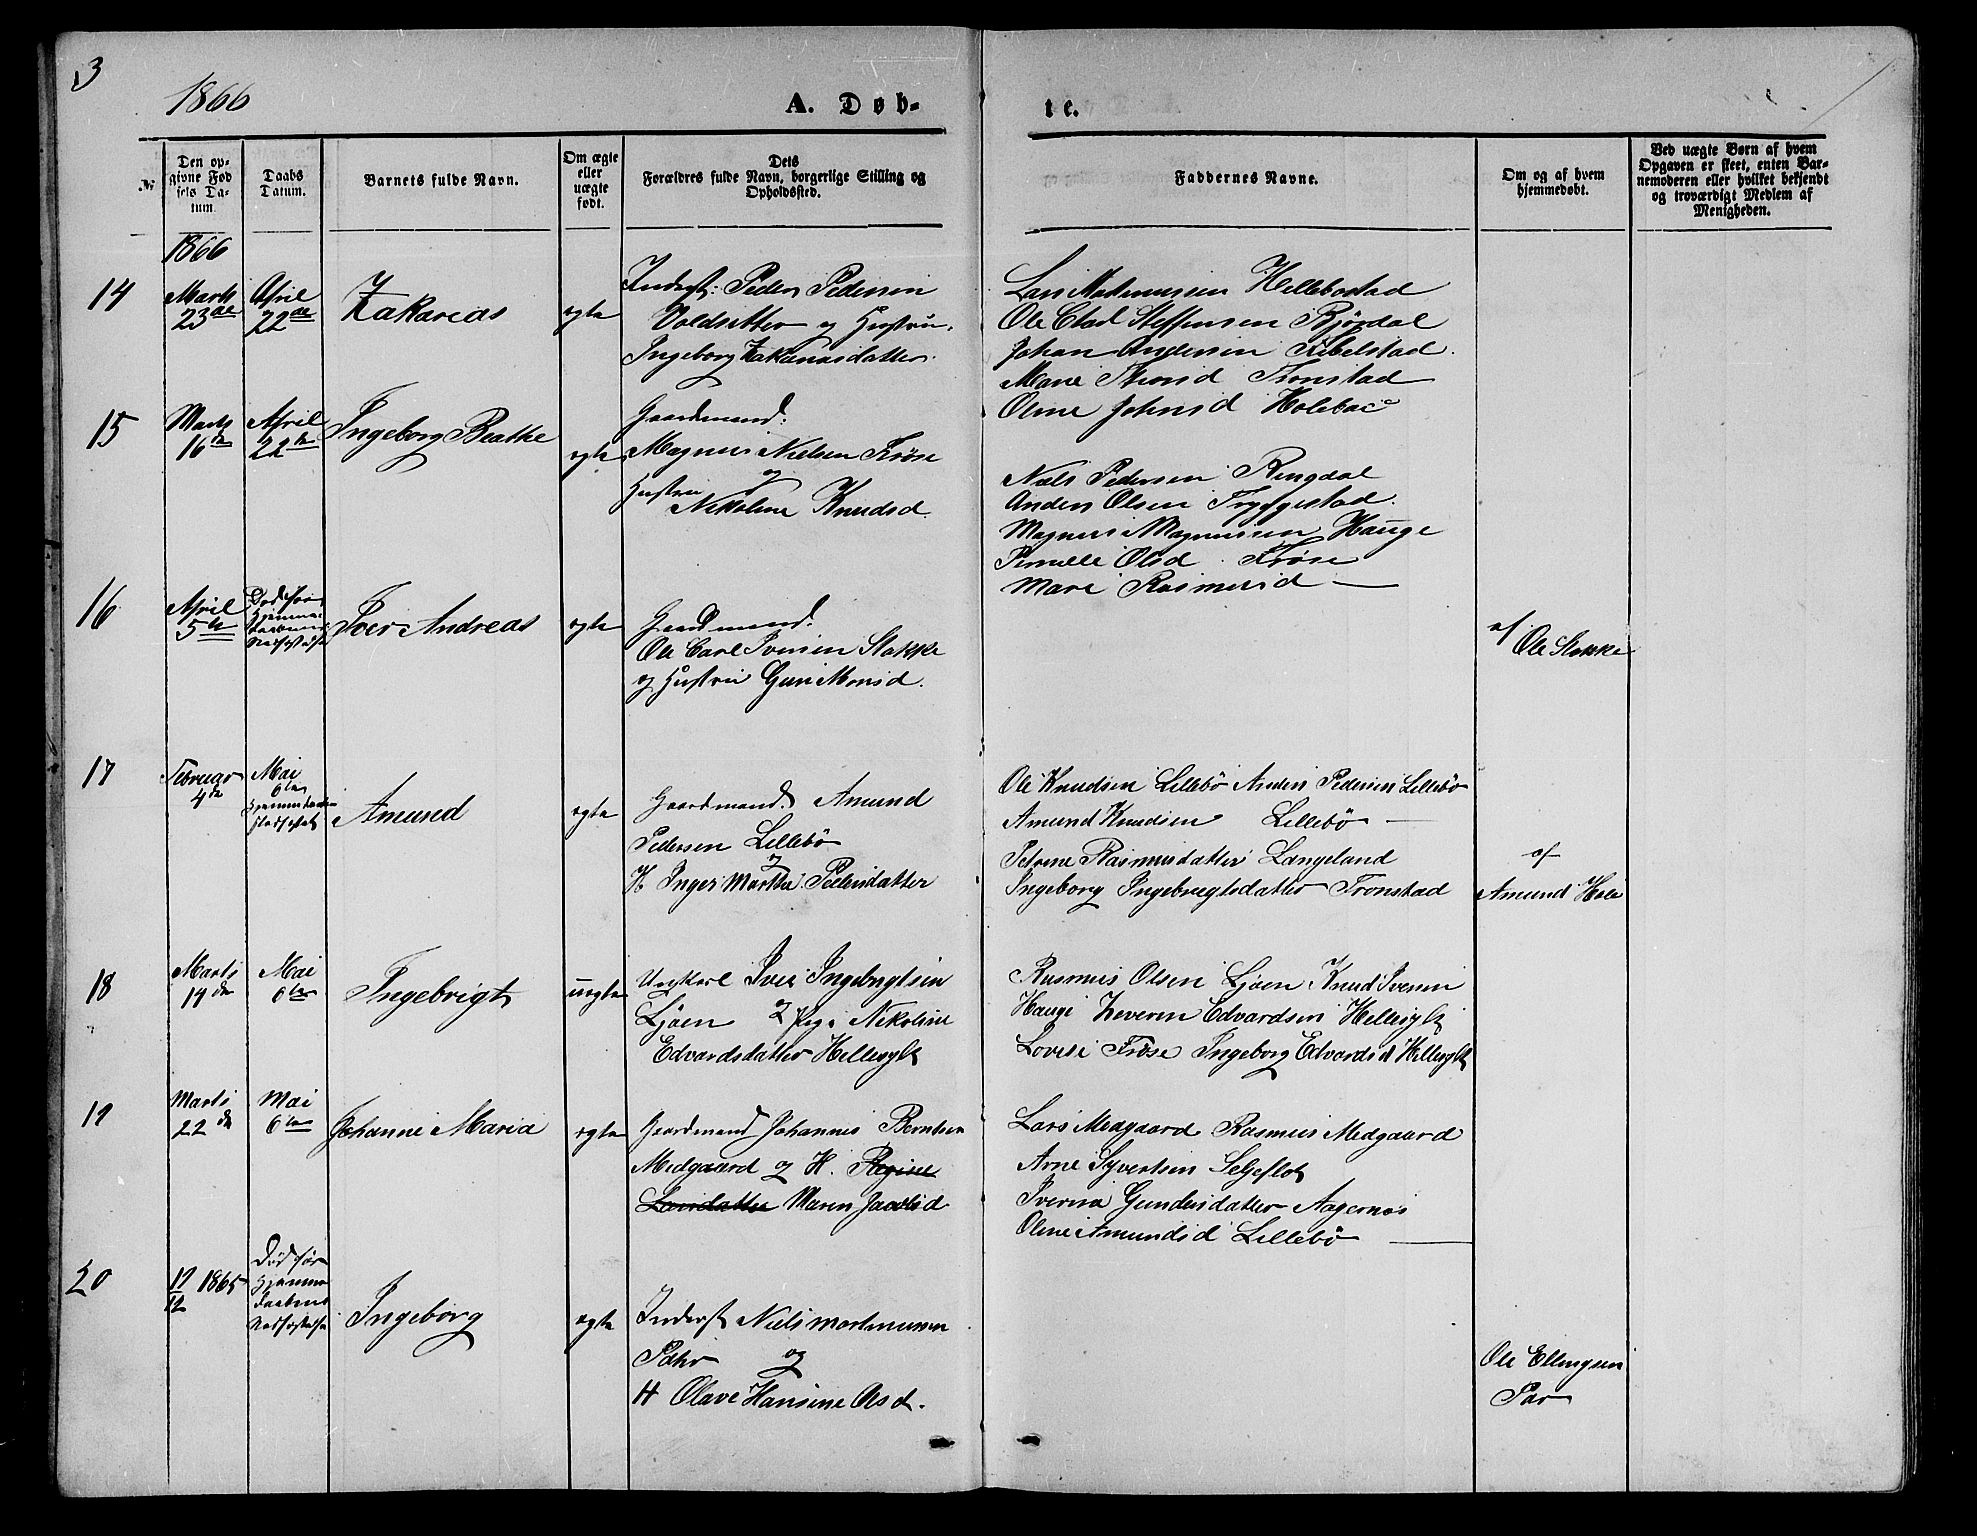 3
1866
A. Døb-
te.
№
Den op-
givne Fød
sels Da-
tum.
Daabs
Datum.
Barnets fulde Navn.
Om ægte
eller
uægte
født.
Dets
Forældres fulde Navn, borgerlige Stilling og
Opholdssted.
Faddernes Navne.
Om og af hvem
hjemmedøbt.
Ved uægte Børn af hvem
Opgaven er skeet, enten Bar-
nemoderen eller hvilket bekjendt
og troværdigt Medlem af
Menigheden.
1866
14
Marts
23de
April
22de
Zakarias
egte
Inderst: Peder Pedersen
Voldsetter og Hustru.
Ingeborg Zakariasdatter.
Lars Rasmussen Hellebostad
Ole Steffensen Bjørdal
Johan Andersen Fibelstad.
Marie Tronstad
Oline Johnsd Holebac
15
Marts
16de
April
22de
Ingeborg Beathe
egte
Gaardmand:
Magnus Nielsen Frøse
og
Hustru
Nikoline Knudsd.
Niels Pedersen Ringdal
Anders Olsen Tryggestad.
Magnus Magnussen Hauge
Pernille Olsd. Frøse
Mari Rasmusd —
16
April
5te
Død før
Hjemme
daabens
Stadfæstelse
Iver Andreas
egte
Gaardmand.
Ole Carl Iversen Stokke
og Hustru Guri Monsd.
af
Ole Stokke
17
Februar
4de
Mai
6te
Hjemmedaaben
stadfæstet
Amund
egte
Gaardmand. Amund
Pedersen Lillebö
og
H. Inger Martha Pedersdatter
Ole Knudsen Lillebö Anders Pedersen Lillebö
Amund Knudsen Lillebö —
Petrine Rasmusdatter Langeland
Ingeborg Ingebrigtsdatter Tronstad
af
Amund Hole
18
Marts
14de
Mai
6te
Ingebrigt
uegte
Ungkarl Iver Ingebrigtsen
Ljøen og Pige Nikoline
Edvardsdatter Hellesylt
Rasmus Olsen Ljøen Knud Iversen
Hauge Zeveren Edvardsen Hellesylt
Lovise Frøse Ingeborg Edvardsd Hellesylt
19
Marts
22de
Mai
6te
Johanne Maria
egte
Gaardmand Johannes Berntsen
Medgaard og H. Regine
Larsdatter Maren Jacobsd
Lars Medgaard Rasmus Medgaard
Arne Syvertsen Seljeflot
Iverina Gundersdatter Aagernes
Oline Amundsd Lillebö —
20
17/12 1865
Død før
Hjemme
daabens
Stadfæstelse
Ingeborg
egte
Inderst Niels Martinussen
og
H Olave Hansine Olsd.
Ole Ellingsen